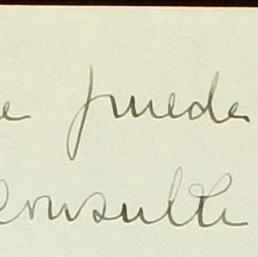 e puede
consulte